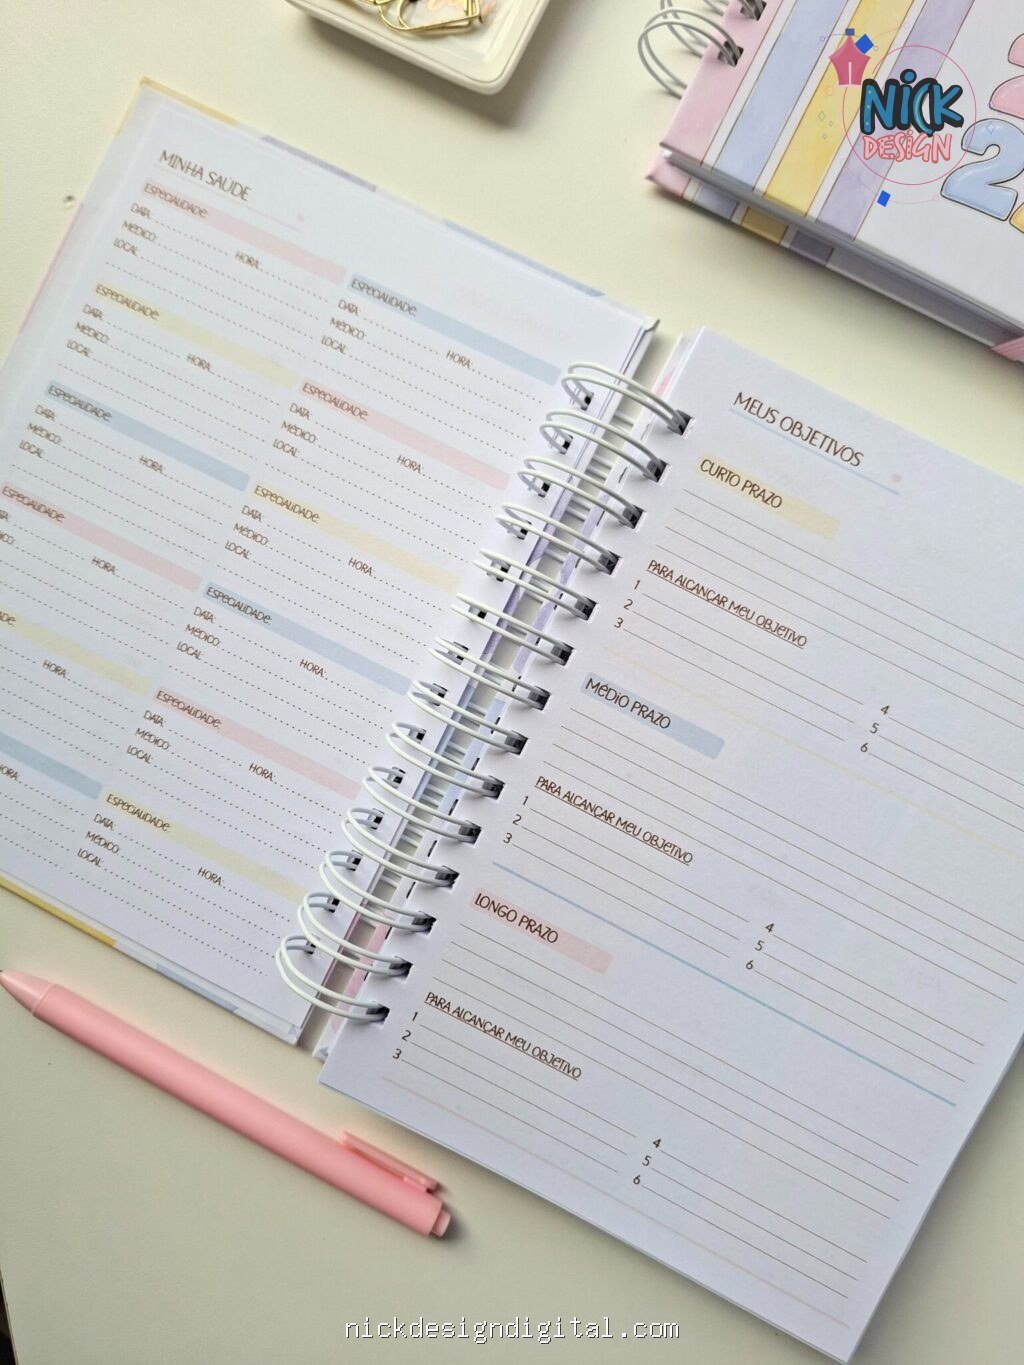 NICK
DESIGN
2
MINHA SAÚDE
ESPECIALIDADE:
DATA:
MÉDICO:
HORA:
LOCAL:
ESPECIALIDADE:
DATA:
MÉDICO:
HORA:
LOCAL:
ESPECIALIDADE:
DATA:
MÉDICO:
HORA:
LOCAL:
ESPECIALIDADE:
DATA:
MÉDICO:
HORA:
LOCAL:
ESPECIALIDADE:
DATA:
MÉDICO:
HORA:
LOCAL:
ESPECIALIDADE:
DATA:
MÉDICO:
HORA:
LOCAL:
ESPECIALIDADE:
HORA:
ESPECIALIDADE:
DATA:
MÉDICO:
HORA:
LOCAL:
DADE:
HORA:
ESPECIALIDADE:
DATA:
MÉDICO:
HORA:
LOCAL:
HORA:
ESPECIALIDADE:
DATA:
MÉDICO:
HORA:
LOCAL:
MEUS OBJETIVOS
CURTO PRAZO
PARA ALCANÇAR MEU OBJETIVO
1
2
3
4
5
6
MÉDIO PRAZO
PARA ALCANÇAR MEU OBJETIVO
1
2
3
4
5
6
LONGO PRAZO
PARA ALCANÇAR MEU OBJETIVO
1
2
3
4
5
6
nickdesigndigital.com